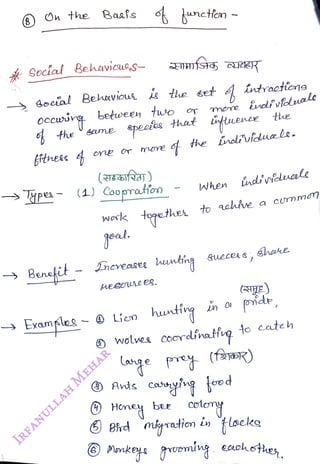 Ⓑ On the Basis of function -
* Social Behaviours- सामाजिक व्यवहार
→ Social Behaviour is the set of intractions
occuring between two or more individuals
of the same species that influence the
fitness of one or more of the individuals.
(सहकारिता)
→ Types - (1) Coopration - When individuals
work together to achive a common
goal.
→ Benefit - Increases hunting success, share
resources.
(समूह)
→ Examples - ① Lion hunting in a pride,
② Wolves coordinating to catch
large prey (शिकार)
③ Ants carrying food
④ Honey bee colony
⑤ Bird migration in flocks
⑥ Monkeys grooming each other.
IRFANULLAH MEHAR